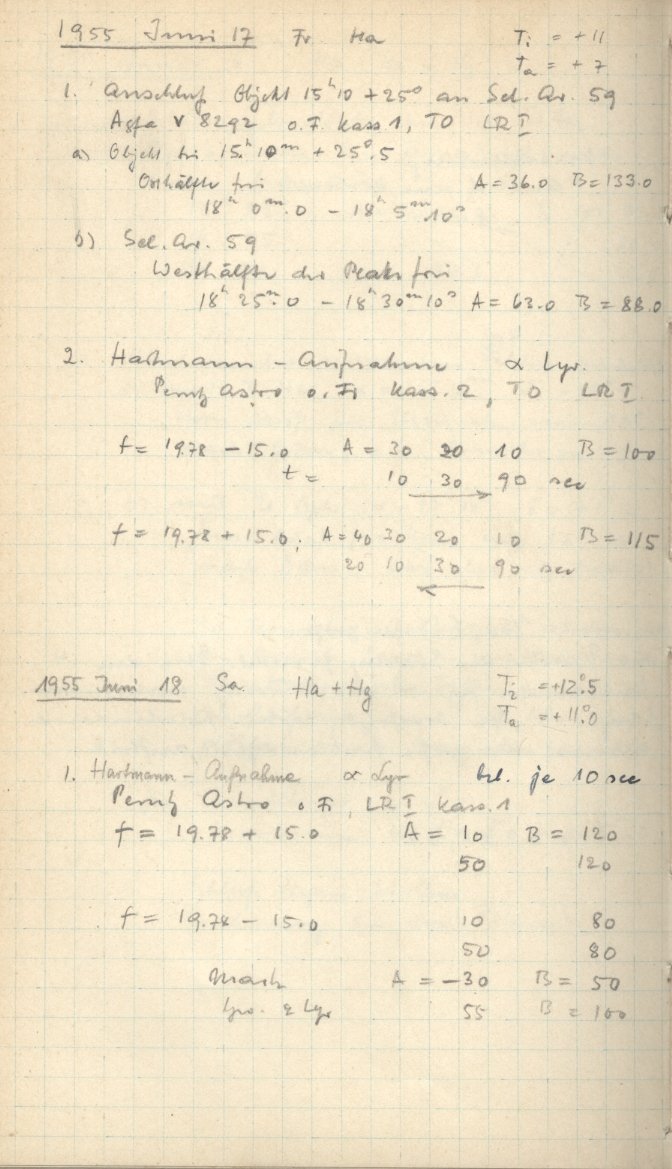 1955 Juni 17 Fr Ha Ti = +11
Ta = +7
1. Anschluß Objekt 15h10 +25° an Sel. Ar. 59
Agfa V 8292 o.F. Kass 1, TO LR I
a) Objekt bei 15h 10m + 25°.5
Osthälfte frei A = 36.0 B = 133.0
18h 0m.0 – 18h 5m 10s
b) Sel. Ar. 59
Westhälfte der Platte frei
18h 25m.0 – 18h 30m 10s A = 63.0 B = 88.0
2. Hartmann – Aufnahme α Lyr.
Perutz Astro o. Fi Kass. 2, TO LR I
f = 19.78 – 15.0 A = 30 20 10 B = 100
t = 10 30 90 sec
f = 19.78 + 15.0; A = 40 30 20 10 B = 115
20 10 30 90 sec
1955 Juni 18 Sa. Ha + Hg Ti = +12°.5
Ta = +11°.0
1. Hartmann – Aufnahme α Lyr bel. je 10 sec
Perutz Astro o Fi, LR I Kass. 1
f = 19.78 + 15.0 A = 10 B = 120
50 120
f = 19.78 – 15.0 10 80
50 80
A = –30 B = 50
Lyr 55 B = 100